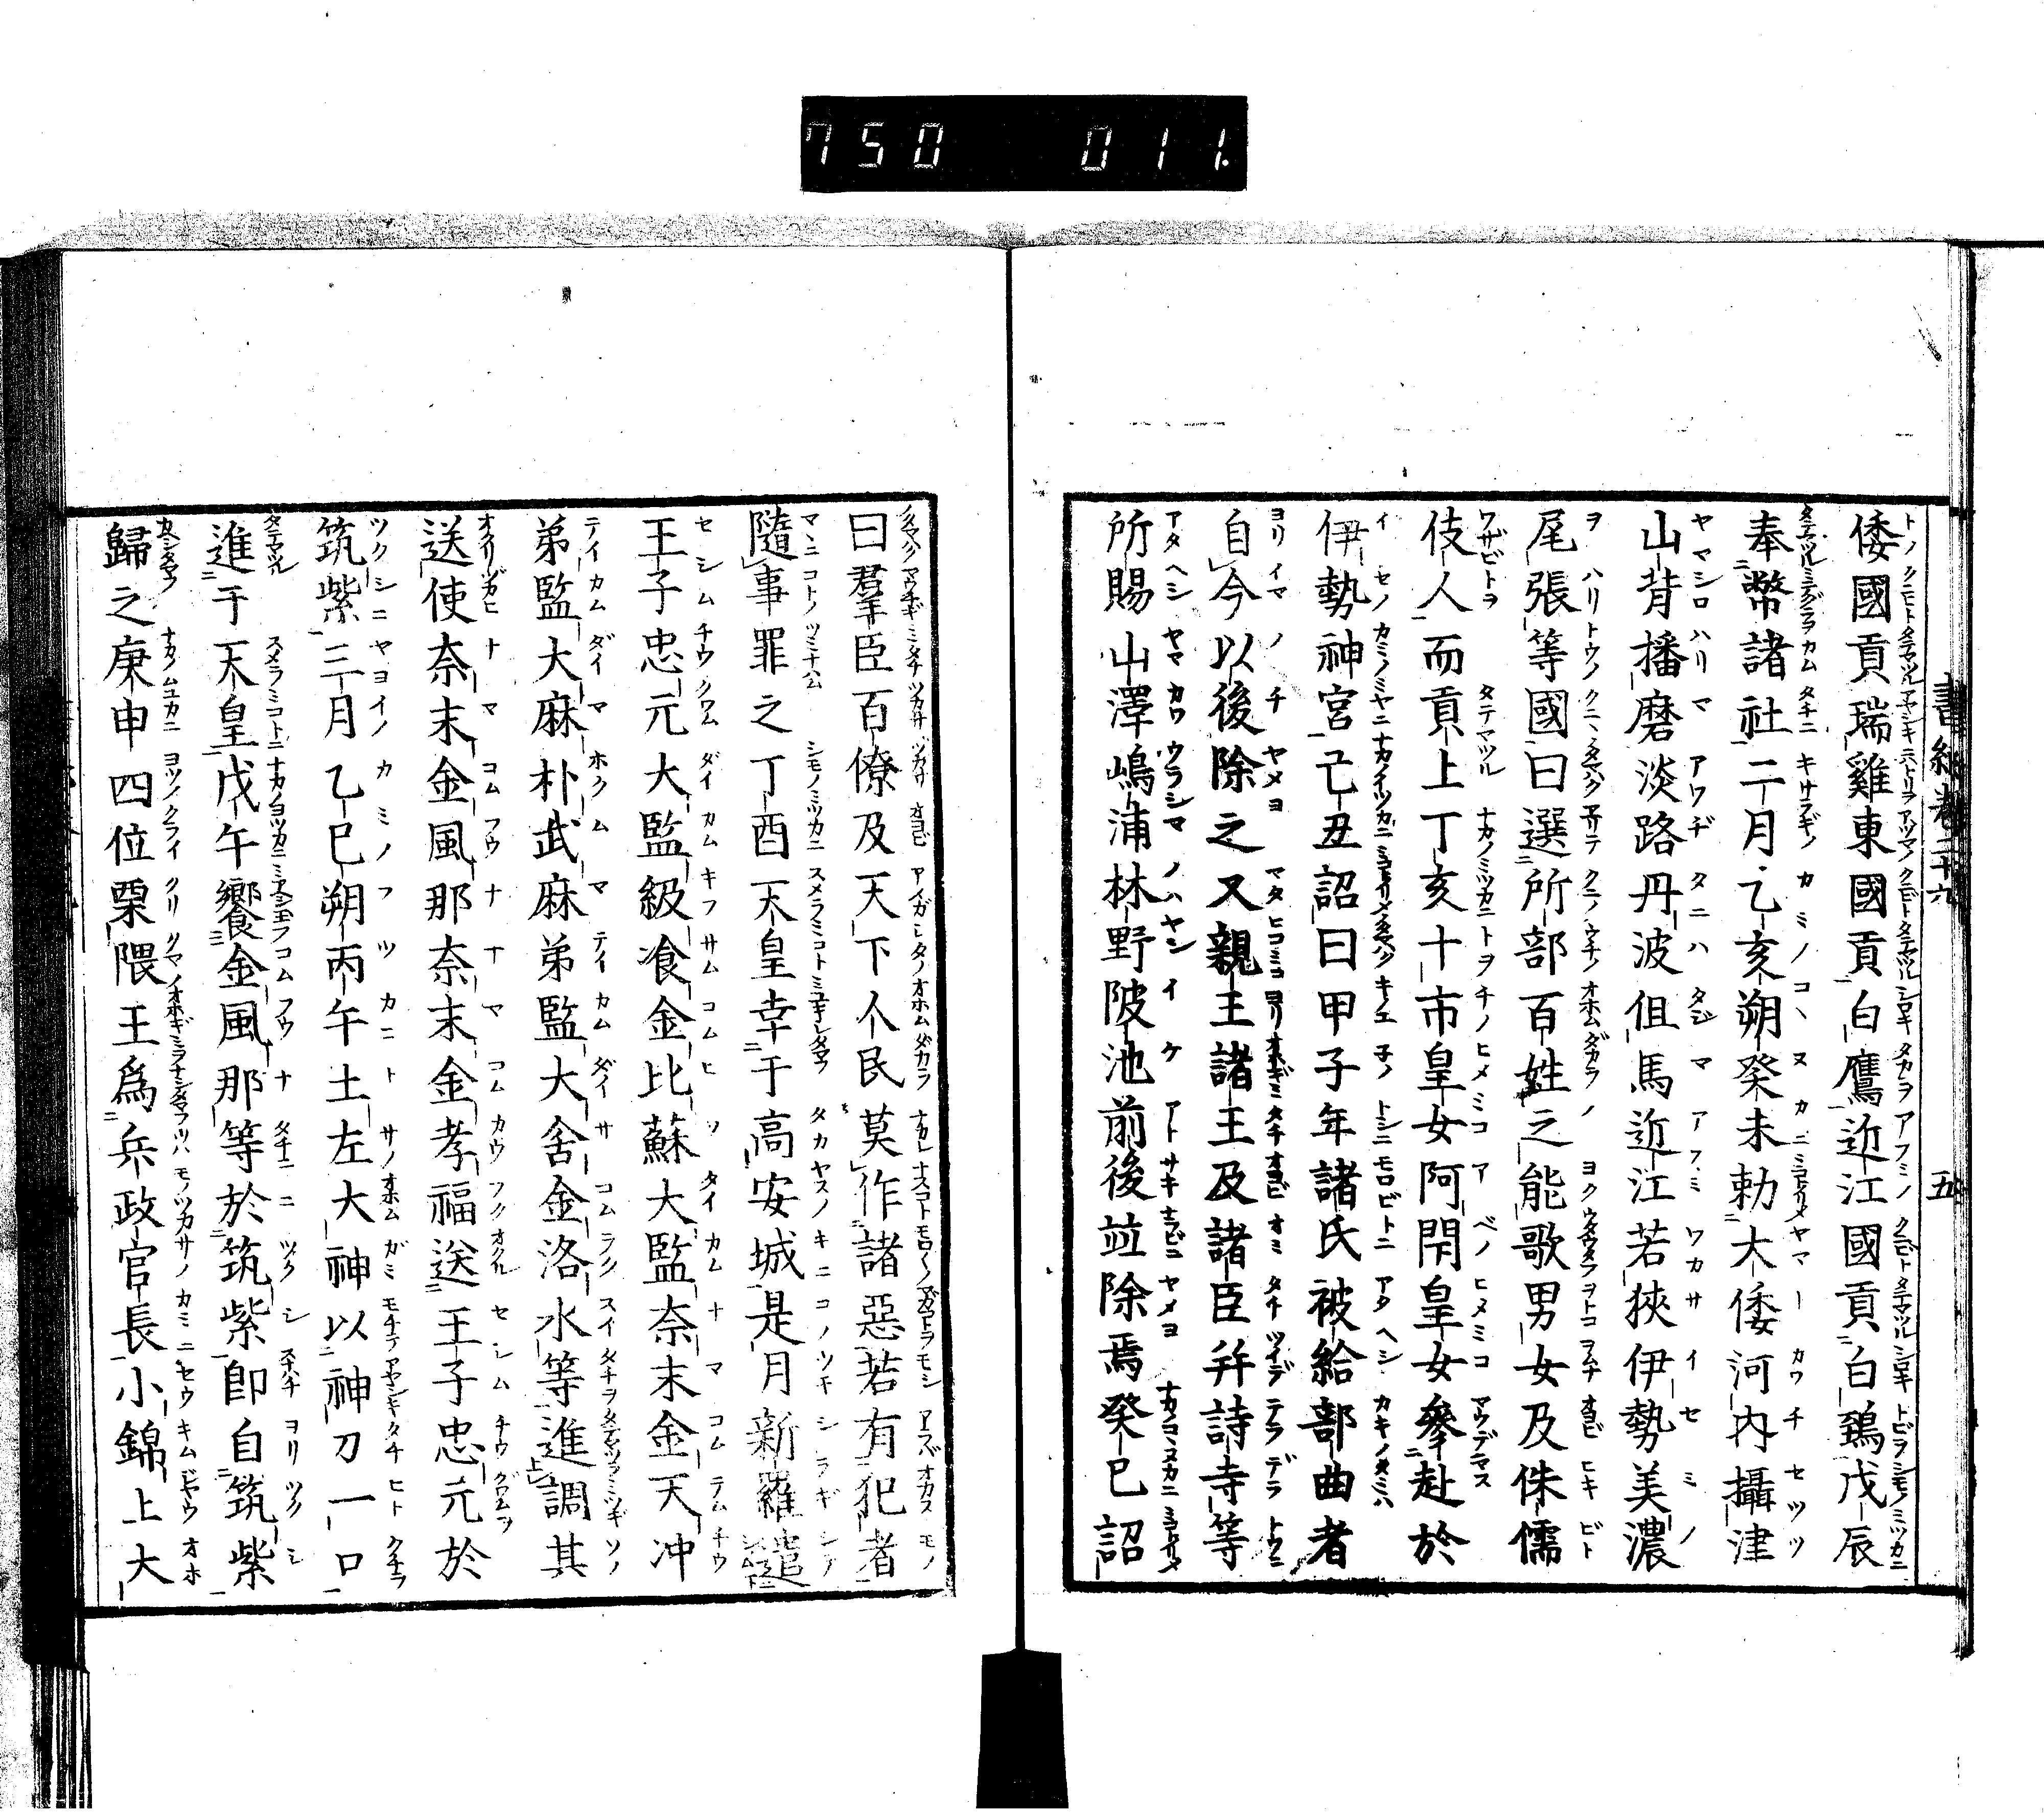 750 011.
書紀卷二十九 五
倭國貢瑞雞東國貢白鷹近江國貢白鵄戊辰
奉幣諸社二月乙亥朔癸未勅大倭河內攝津
山背播磨淡路丹波但馬近江若狹伊勢美濃
尾張等國曰選所部百姓之能歌男女及侏儒
伎人而貢上丁亥十市皇女阿閇皇女參赴於
伊勢神宮己丑詔曰甲子年諸氏被給部曲者
自今以後除之又親王諸王及諸臣幷諸寺等
所賜山澤嶋浦林野陂池前後竝除焉癸巳詔
曰羣臣百僚及天下人民莫作諸惡若有犯者
隨事罪之丁酉天皇幸于高安城是月新羅遣
王子忠元大監級飡金比蘇大監奈末金天冲
弟監大麻朴武麻弟監大舍金洛水等進調其
送使奈末金風那奈末金孝福送王子忠元於
筑紫三月乙巳朔丙午土左大神以神刀一口
進于天皇戊午饗金風那等於筑紫卽自筑紫
歸之庚申四位栗隈王爲兵政官長小錦上大